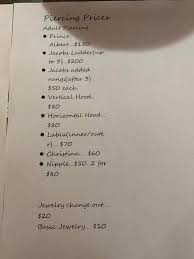 Piercing Prices
Adult Piercing
• Prince
Albert..$150
• Jacobs Ladder(up
to 3)..$200
• Jacobs added
rungs(after 3)..
$50 each
• Vertical Hood..
$80
• Horizontal Hood..
$80
• Labia(inner/oute
r)... $70
• Christina... $60
• Nipple..50. 2 for
$80
Jewelry change out...
$20
Basic Jewelry... $10